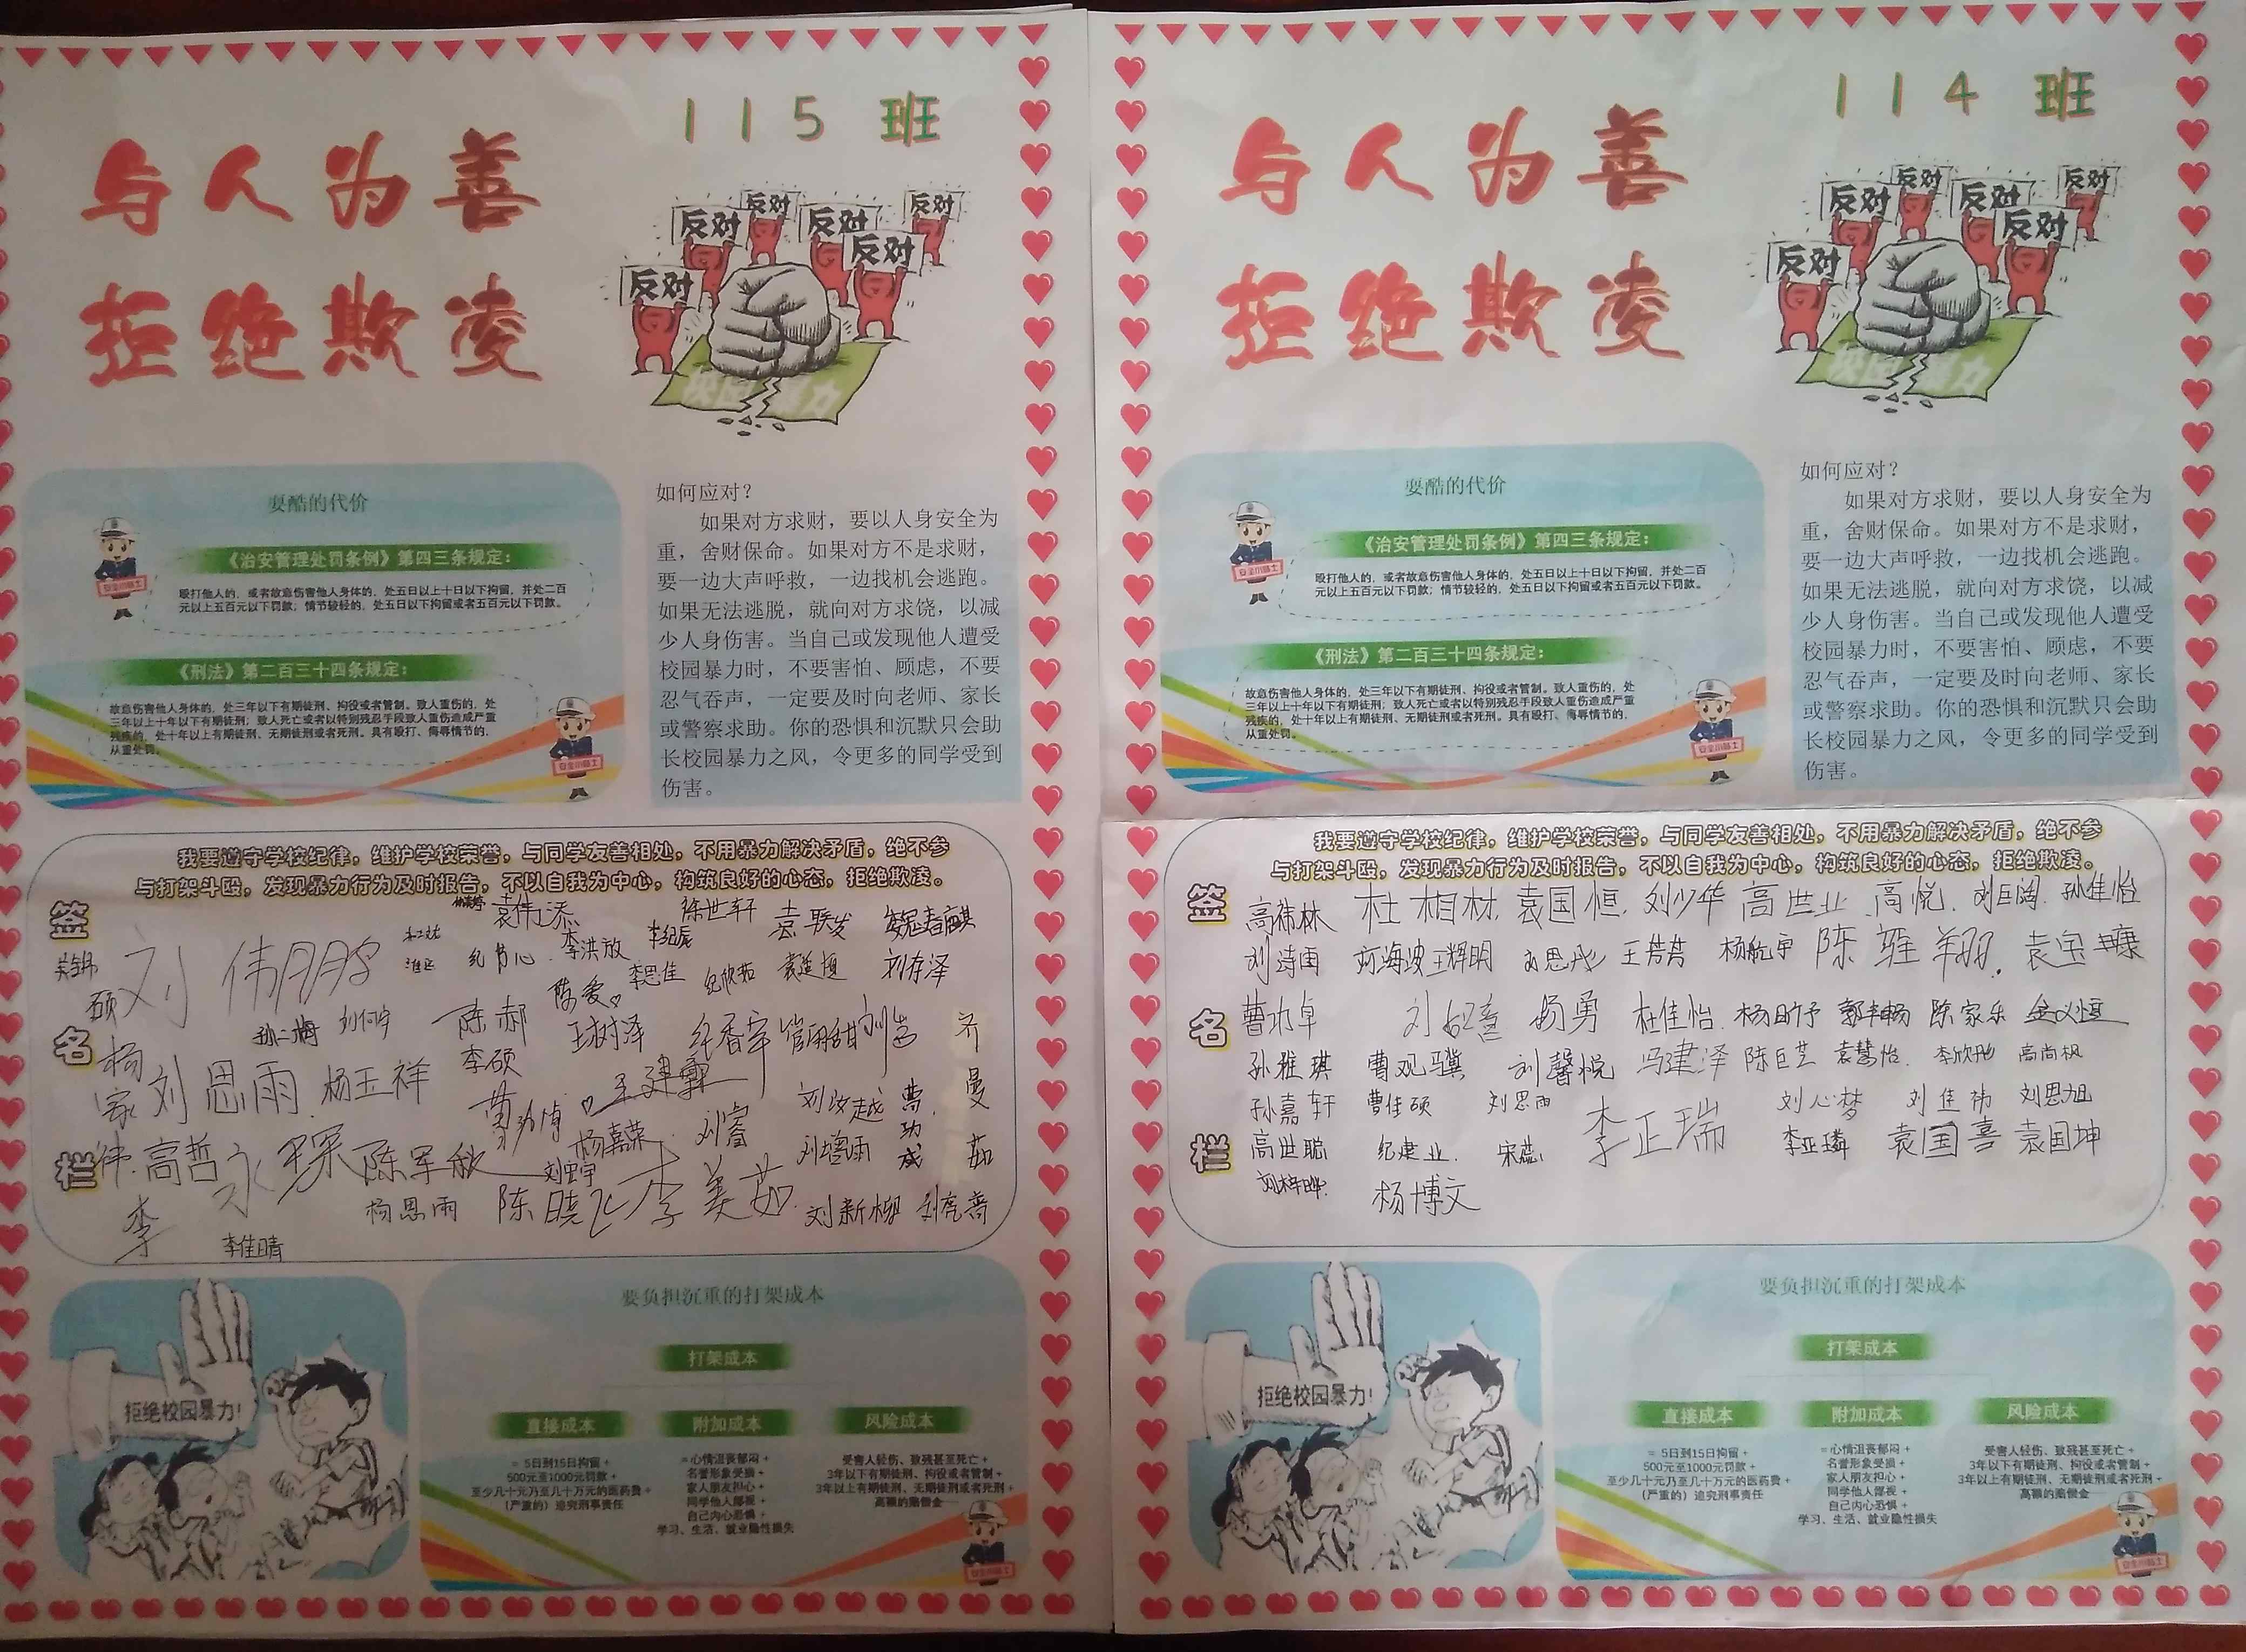 115班
与人为善
拒绝欺凌
反对
反对
反对
反对
反对
反对
校园暴力
耍酷的代价
《治安管理处罚条例》第四三条规定：
殴打他人的，或者故意伤害他人身体的，处五日以上十日以下拘留，并处二百
元以上五百元以下罚款；情节较轻的，处五日以下拘留或者五百元以下罚款。
安全小贴士
《刑法》第二百三十四条规定：
故意伤害他人身体的，处三年以下有期徒刑、拘役或者管制。致人重伤的，处
三年以上十年以下有期徒刑；致人死亡或者以特别残忍手段致人重伤造成严重
残疾的，处十年以上有期徒刑、无期徒刑或者死刑。具有殴打、侮辱情节的，
从重处罚。
安全小贴士
如何应对？
如果对方求财，要以人身安全为
重，舍财保命。如果对方不是求财，
要一边大声呼救，一边找机会逃跑。
如果无法逃脱，就向对方求饶，以减
少人身伤害。当自己或发现他人遭受
校园暴力时，不要害怕、顾虑，不要
忍气吞声，一定要及时向老师、家长
或警察求助。你的恐惧和沉默只会助
长校园暴力之风，令更多的同学受到
伤害。
我要遵守学校纪律，维护学校荣誉，与同学友善相处，不用暴力解决矛盾，绝不参
与打架斗殴，发现暴力行为及时报告，不以自我为中心，构筑良好的心态，拒绝欺凌。
签名栏
袁伟添 徐世轩 袁联发
李洪放
刘伟 李思佳 纪欣茹 袁延恒 刘存泽
陈爱
陈郝 王树泽 纪香宇 管朋甜 刘浩
李硕
杨家伟 刘思雨 杨玉祥 王建霖 刘汝越 曹功成 齐曼茹
杨嘉荣 刘睿 刘增雨
高哲 陈军秋 刘宝宇
杨思雨 陈晓飞 李美茹 刘新柳 刘亮善
李佳晴
拒绝校园暴力！
要负担沉重的打架成本
打架成本
直接成本 附加成本 风险成本
= 5日到15日拘留 +
500元至1000元罚款 +
至少几十元乃至几十万元的医药费 +
（严重的）追究刑事责任
= 心情沮丧郁闷 +
名誉形象受损 +
家人朋友担心 +
同学他人鄙视 +
自己内心恐惧 +
学习、生活、就业隐性损失
受害人轻伤、致残甚至死亡 +
3年以下有期徒刑、拘役或者管制 +
3年以上有期徒刑、无期徒刑或者死刑 +
高额的赔偿金
安全小贴士
114班
与人为善
拒绝欺凌
反对
反对
反对
反对
反对
反对
校园暴力
耍酷的代价
《治安管理处罚条例》第四三条规定：
殴打他人的，或者故意伤害他人身体的，处五日以上十日以下拘留，并处二百
元以上五百元以下罚款；情节较轻的，处五日以下拘留或者五百元以下罚款。
安全小贴士
《刑法》第二百三十四条规定：
故意伤害他人身体的，处三年以下有期徒刑、拘役或者管制。致人重伤的，处
三年以上十年以下有期徒刑；致人死亡或者以特别残忍手段致人重伤造成严重
残疾的，处十年以上有期徒刑、无期徒刑或者死刑。具有殴打、侮辱情节的，
从重处罚。
安全小贴士
如何应对？
如果对方求财，要以人身安全为
重，舍财保命。如果对方不是求财，
要一边大声呼救，一边找机会逃跑。
如果无法逃脱，就向对方求饶，以减
少人身伤害。当自己或发现他人遭受
校园暴力时，不要害怕、顾虑，不要
忍气吞声，一定要及时向老师、家长
或警察求助。你的恐惧和沉默只会助
长校园暴力之风，令更多的同学受到
伤害。
我要遵守学校纪律，维护学校荣誉，与同学友善相处，不用暴力解决矛盾，绝不参
与打架斗殴，发现暴力行为及时报告，不以自我为中心，构筑良好的心态，拒绝欺凌。
签名栏
高祎林 杜相材 袁国恒 刘少华 高世业 高悦 刘巨阔 孙佳怡
刘诗雨 王辉明 刘思彤 王芳芳 杨航宇 陈骓翔 袁宝康
曹功卓 杨勇 杜佳怡 杨昀予 郭丰畅 陈家乐
孙雅琪 曹观骥 刘馨悦 冯建泽 陈巨芸 袁慧怡 李欣彤 高尚枫
孙嘉轩 曹佳硕 刘思雨 李正瑞 刘心梦 刘佳祎 刘思旭
高世聪 纪建业 宋蕊 李亚璘 袁国喜 袁国坤
杨博文
拒绝校园暴力！
要负担沉重的打架成本
打架成本
直接成本 附加成本 风险成本
= 5日到15日拘留 +
500元至1000元罚款 +
至少几十元乃至几十万元的医药费 +
（严重的）追究刑事责任
= 心情沮丧郁闷 +
名誉形象受损 +
家人朋友担心 +
同学他人鄙视 +
自己内心恐惧 +
学习、生活、就业隐性损失
受害人轻伤、致残甚至死亡 +
3年以下有期徒刑、拘役或者管制 +
3年以上有期徒刑、无期徒刑或者死刑 +
高额的赔偿金
安全小贴士